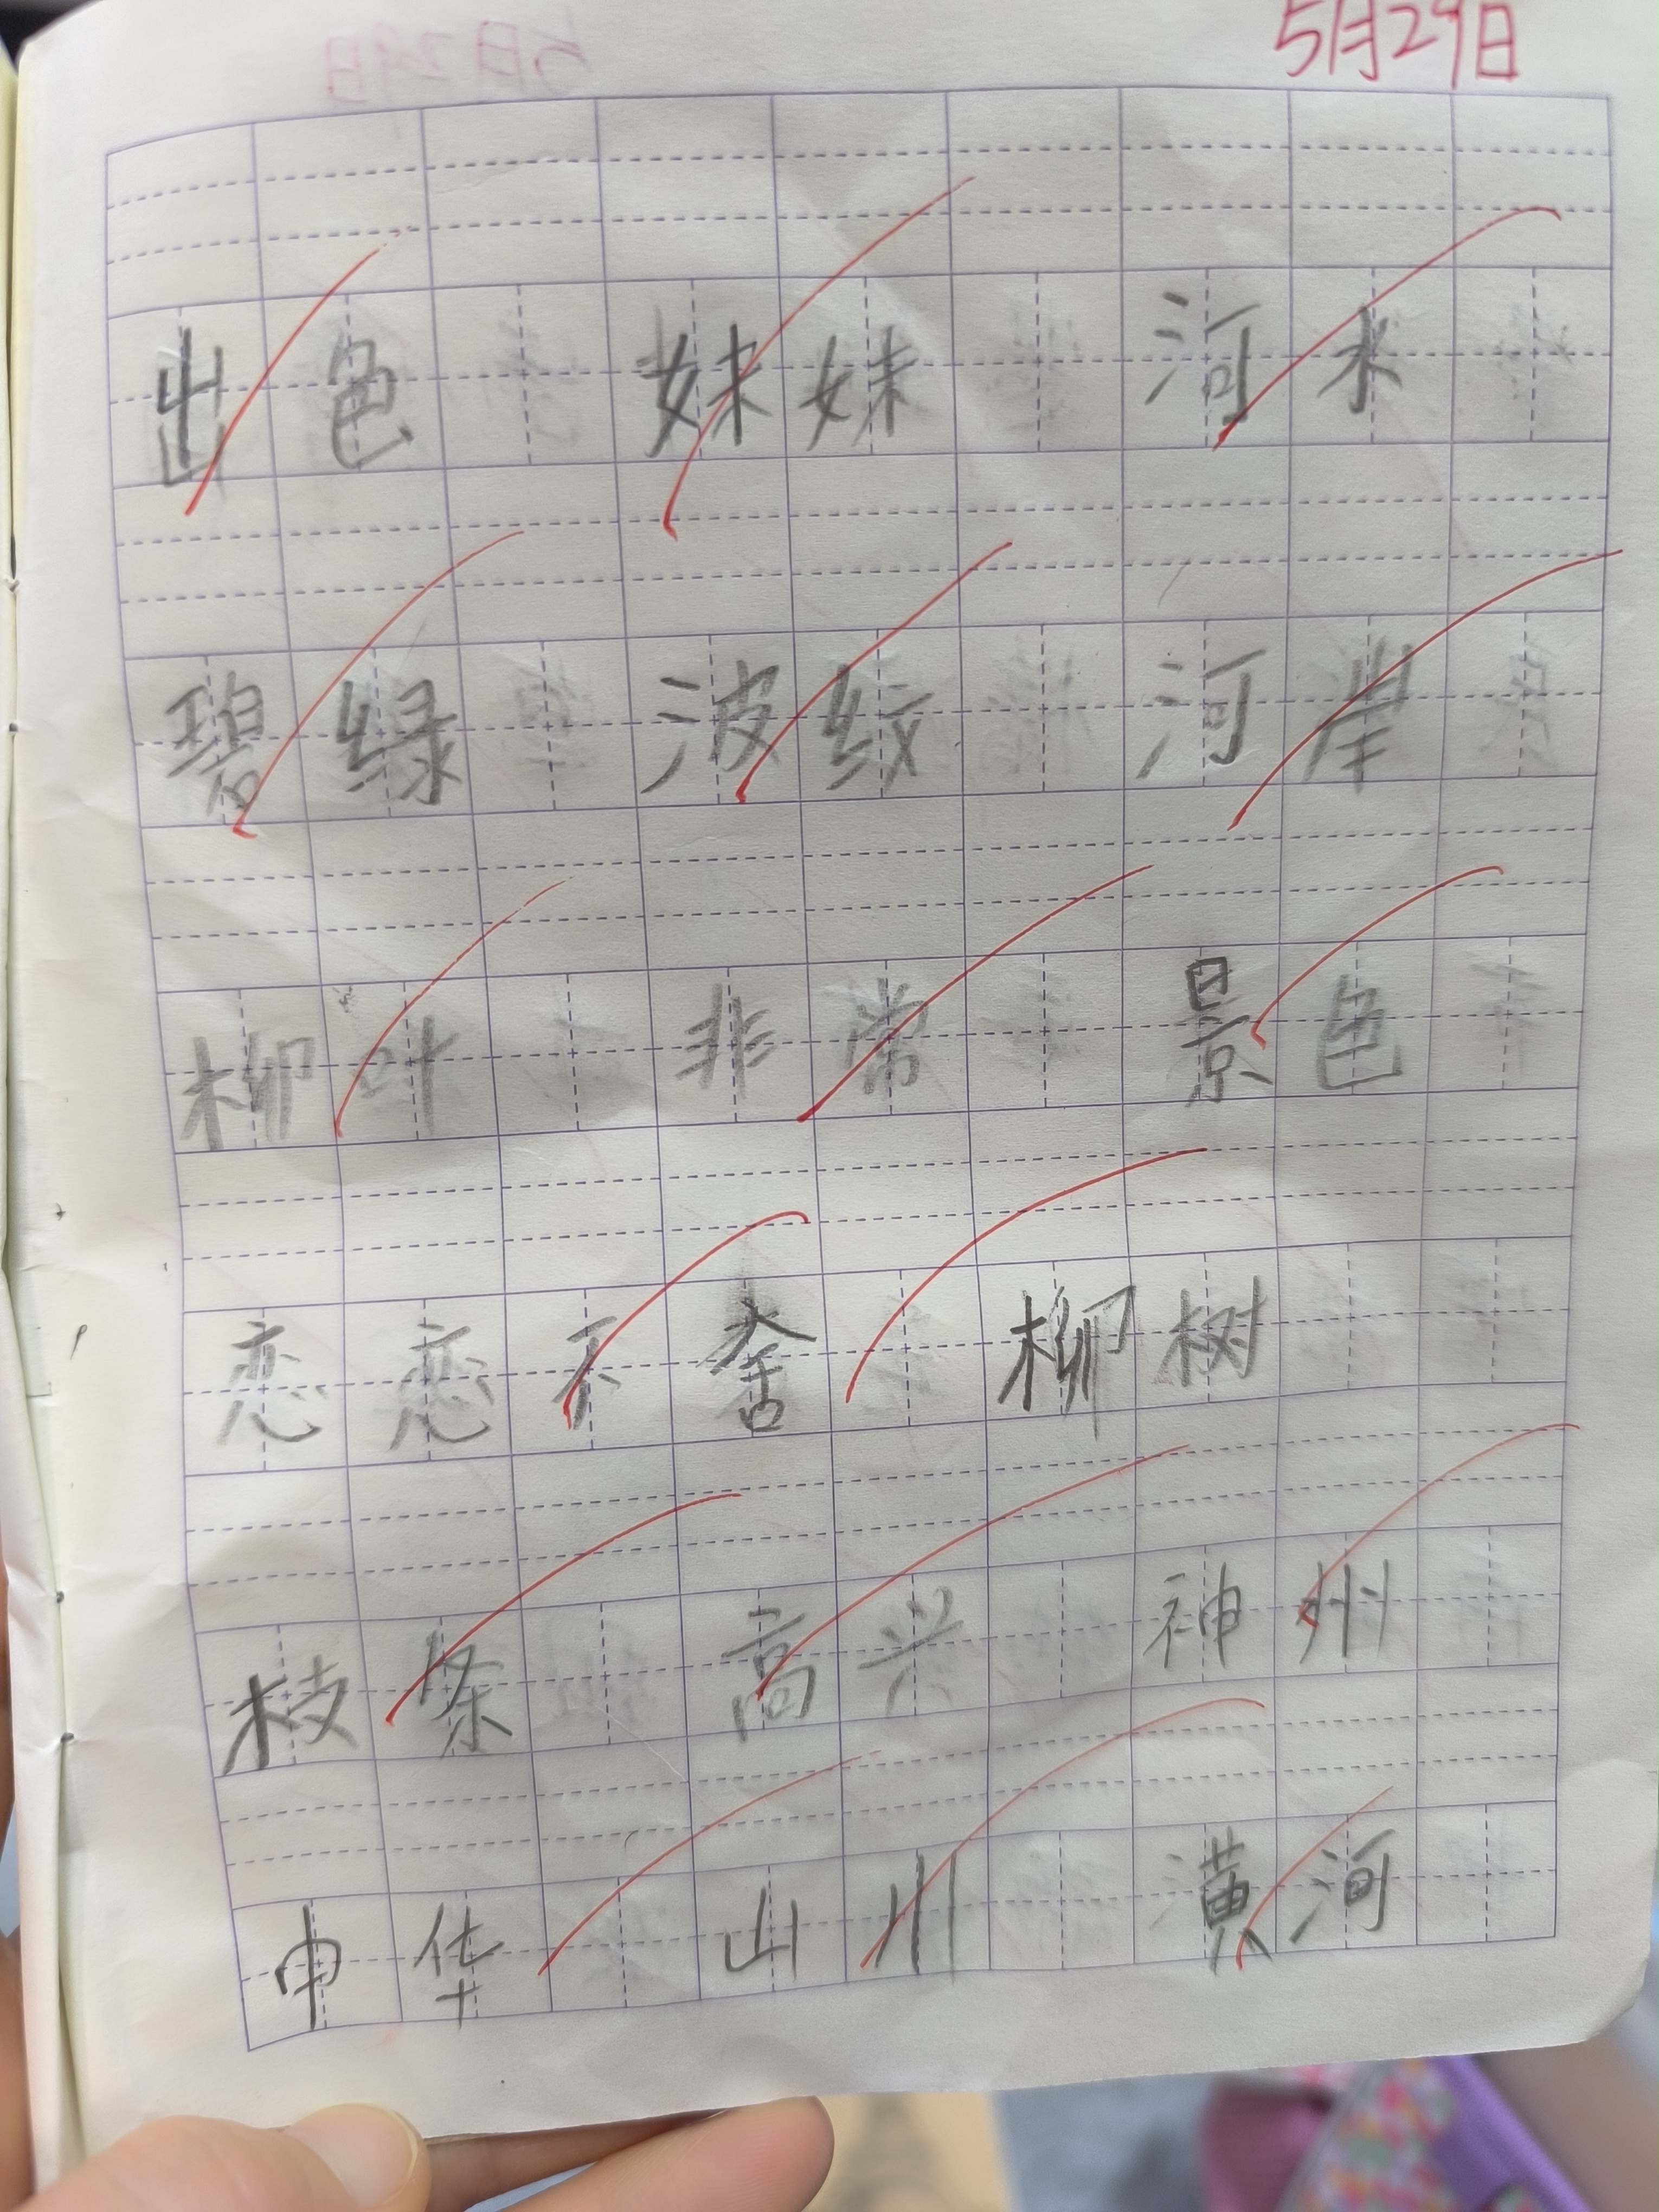 5月29日
出色 妹妹 河水
碧绿 波纹 河岸
柳叶 非常 景色
恋恋不舍 柳树
枝条 高兴 神州
中华 山川 潢河